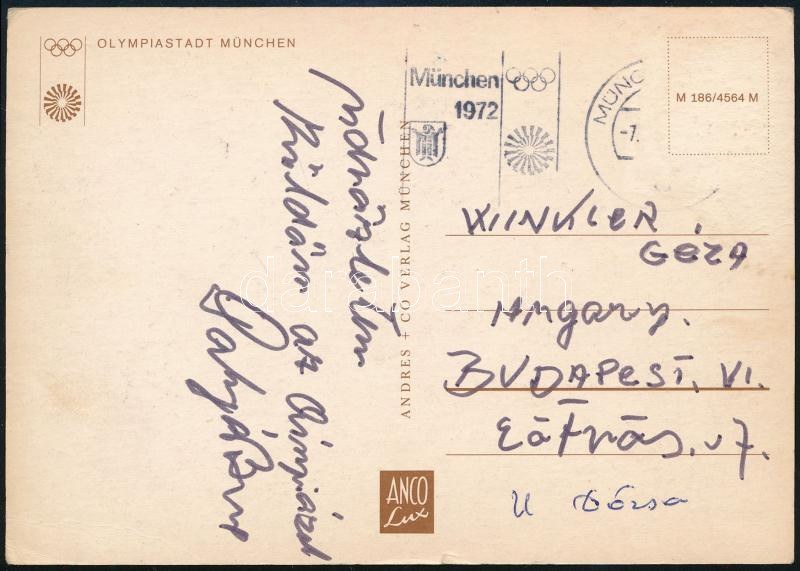 OLYMPIASTADT MÜNCHEN
München
1972
MÜNC
-7.
M 186/4564 M
Üdvözletem
Küldöm az Olimpiáról
ANDRES + CO VERLAG MÜNCHEN
WINKLER
GÉZA
Hungary.
BUDAPEST. VI.
Eötvös. u 7.
ANCO
Lux
darabanth